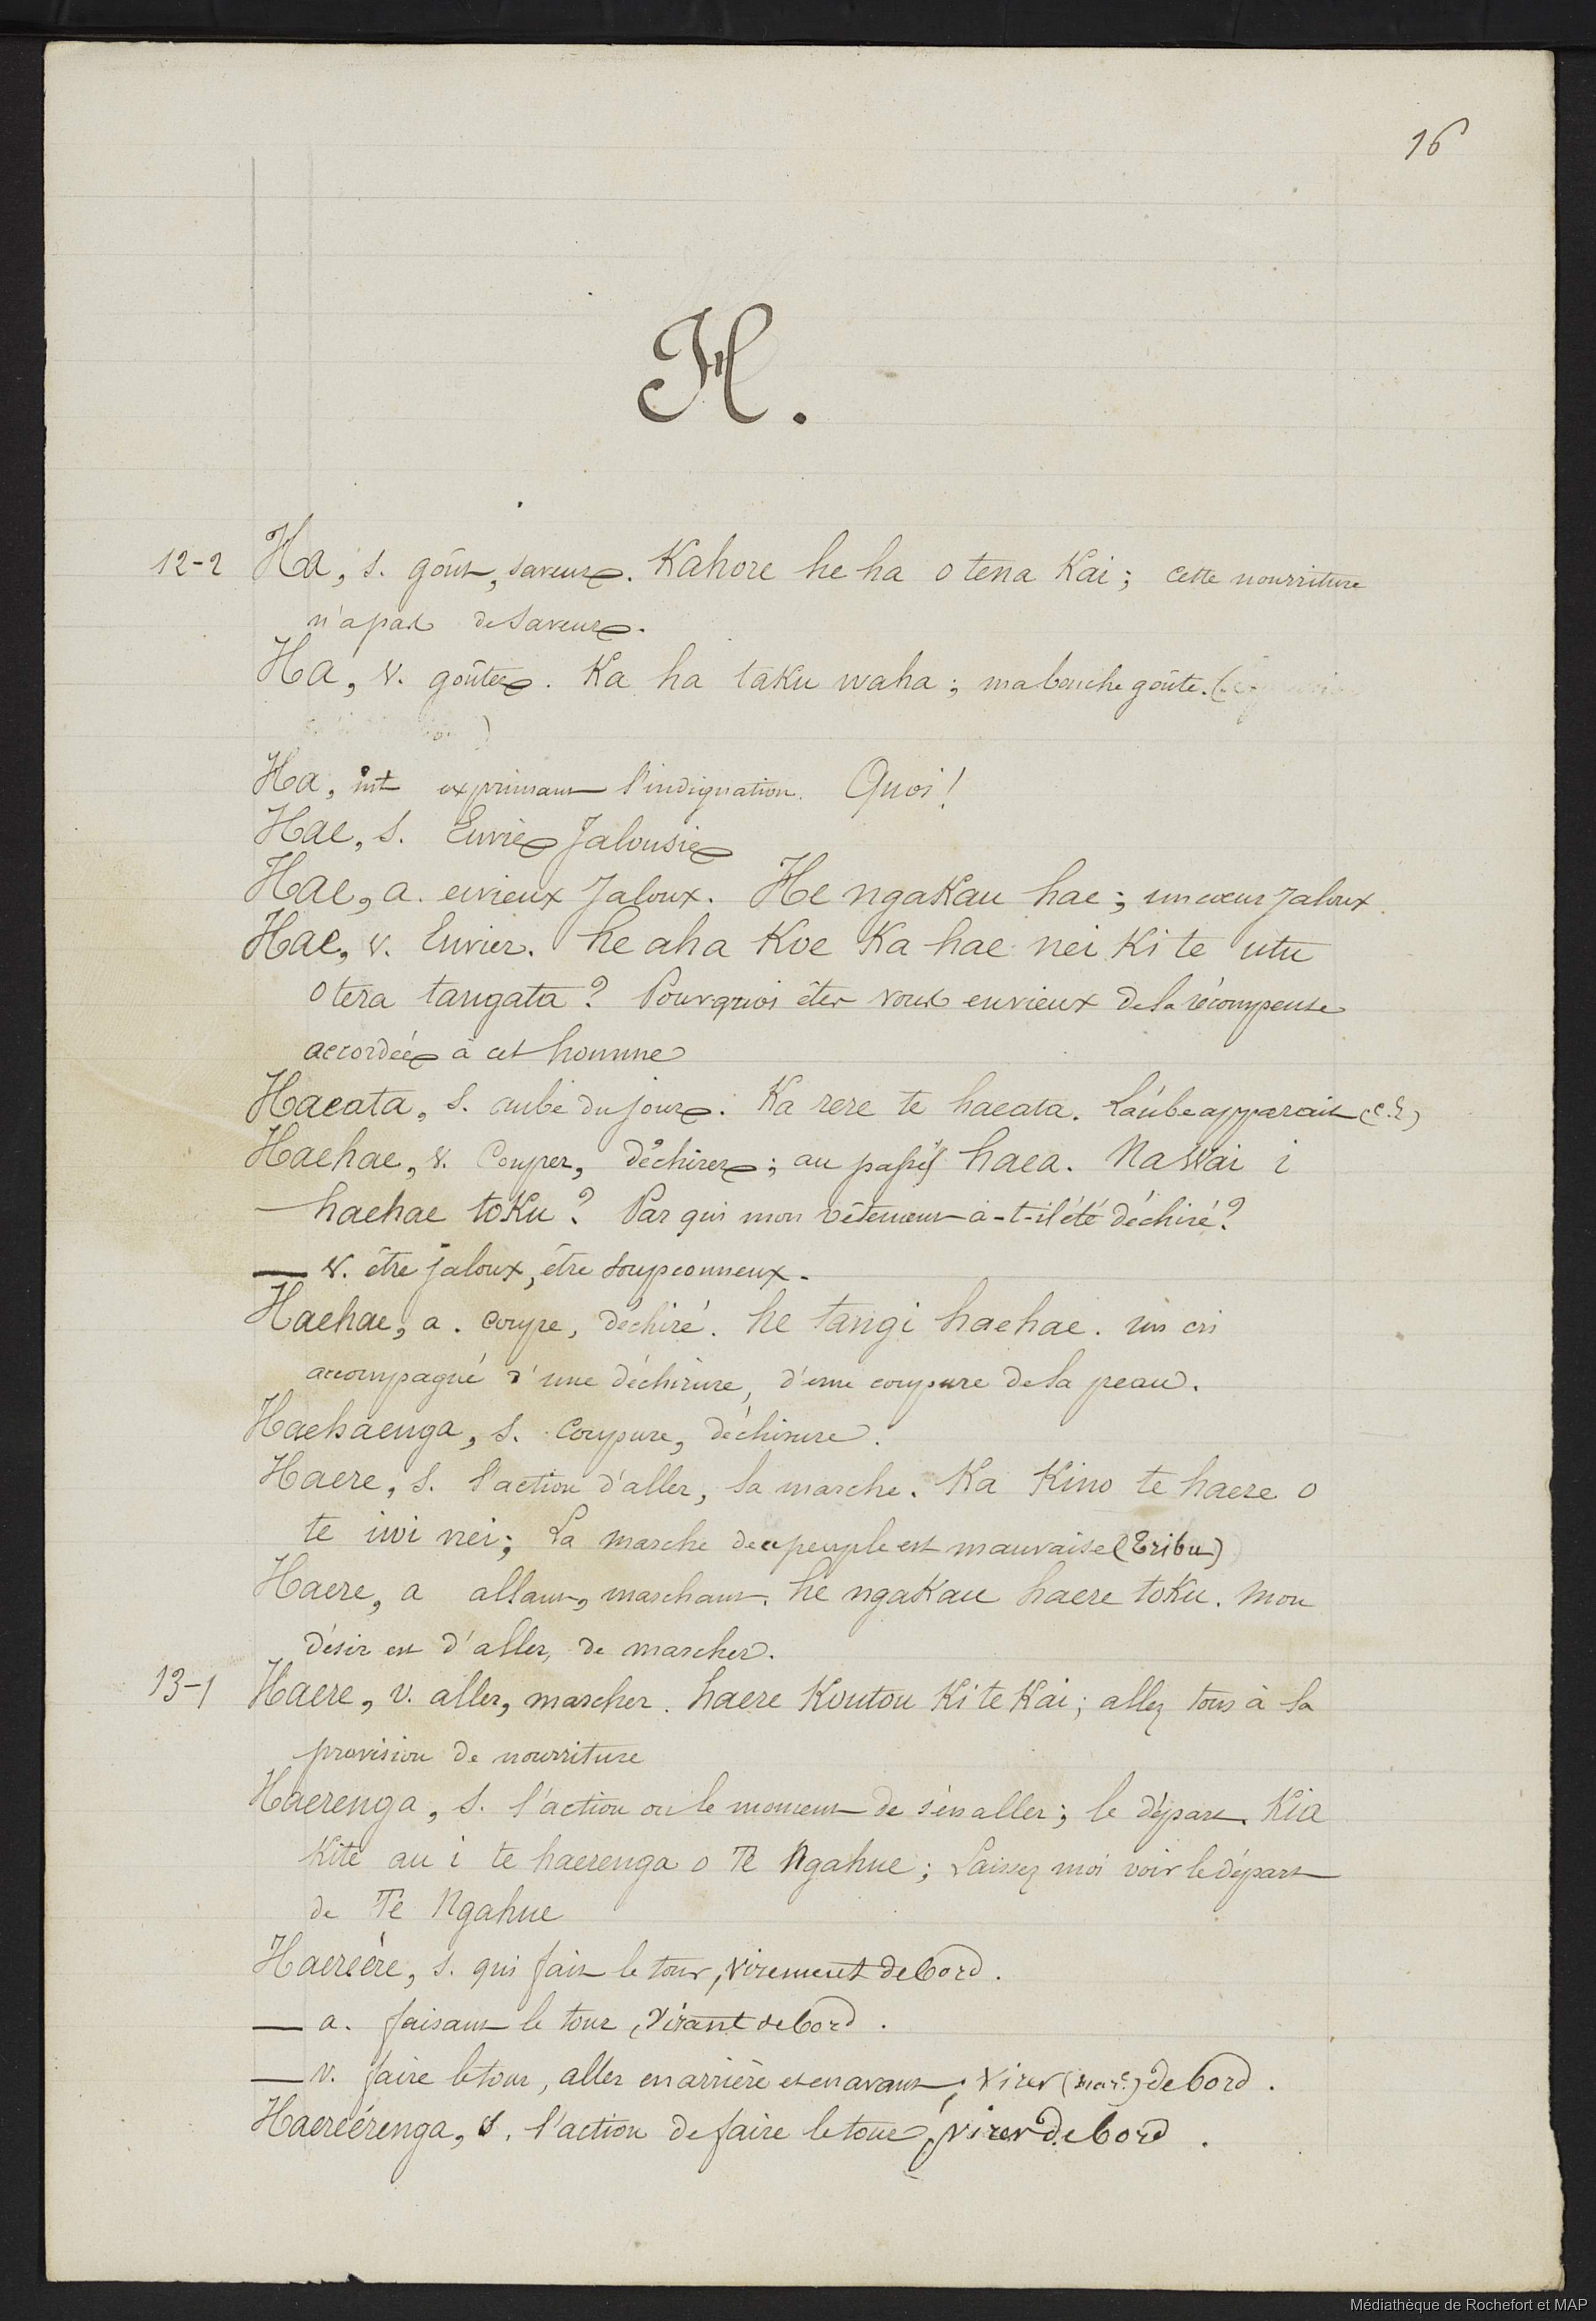 16
H.
12-2 Ha, s. goût, saveur. Kahore he ha o tena Kai; cette nourriture
n'a pas de saveur.
Ha, v. goûter. Ka ha taku waha; ma bouche goûte. (
)
Ha, int exprimant l'indignation. Quoi!
Hae, s. Envie Jalousie
Hae, a. envieux Jaloux. He ngaKau hae; un cœur Jaloux
Hae, v. Envier. he aha Koe Ka hae nei Ki te utu
o tera tangata? Pourquoi êtes vous envieux de la récompense
accordée à cet homme
Haeata, s. aube du jour. Ka rere te haeata. L'aube apparait
Haehae, v. Couper, déchirer; au passif haea. Na Wai i
haehae toKu? Par qui mon vêtement a-t-il été déchiré?
— v. être jaloux, être soupçonneux.
Haehae, a. coupé, déchiré. he tangi haehae. un cri
accompagné d'une déchirure, d'une coupure de la peau.
Haehaenga, s. Coupure, déchirure.
Haere, s. l'action d'aller, la marche. Ka Kino te haere o
te iwi nei; La marche de ce peuple est mauvaise (Tribu)
Haere, a allant, marchant. he ngaKau haere toKu. mon
désir est d'aller, de marcher.
13-1 Haere, v. aller, marcher. haere Koutou Ki te Kai; allez tous à la
provision de nourriture
Haerenga, s. l'action ou le moment de s'en aller; le départ. Kia
Kite au i te haerenga o Te Ngahue; Laissez moi voir le départ
de Te Ngahue
Haereère, s. qui fait le tour, virement de bord.
— a. faisant le tour, Virant de bord.
— v. faire le tour, aller en arrière et en avant; virer (mar.) de bord.
Haereérenga, s. l'action de faire le tour, virer de bord.
Médiathèque de Rochefort et MAP